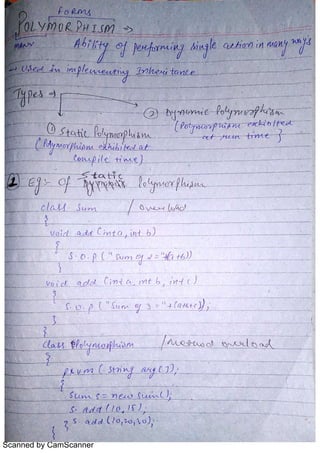 FORMS
POLYMORPHISM →
many Ability of performing single action in many ways
→ Used in implementing Inheritance
Types →
② Dynamic Polymorphism
① Static Polymorphism (Polymorphism exhibited
(Polymorphism exhibited at at run time }
Compile time)
① Eg:- Of Static Polymorphism
class Sum / Overload
{
void add (int a, int b)
{
S.O.P ("Sum of 2="+(a+b))
}
void add (int a, int b, int c)
{
S.O.P ("Sum of 3="+(a+b+c));
}
}
class Polymorphism /method overload
{
p s v m (String arg[]);
{
Sum s = new Sum();
s.add(10,15);
s.add(10,20,30);
} }
Scanned by CamScanner